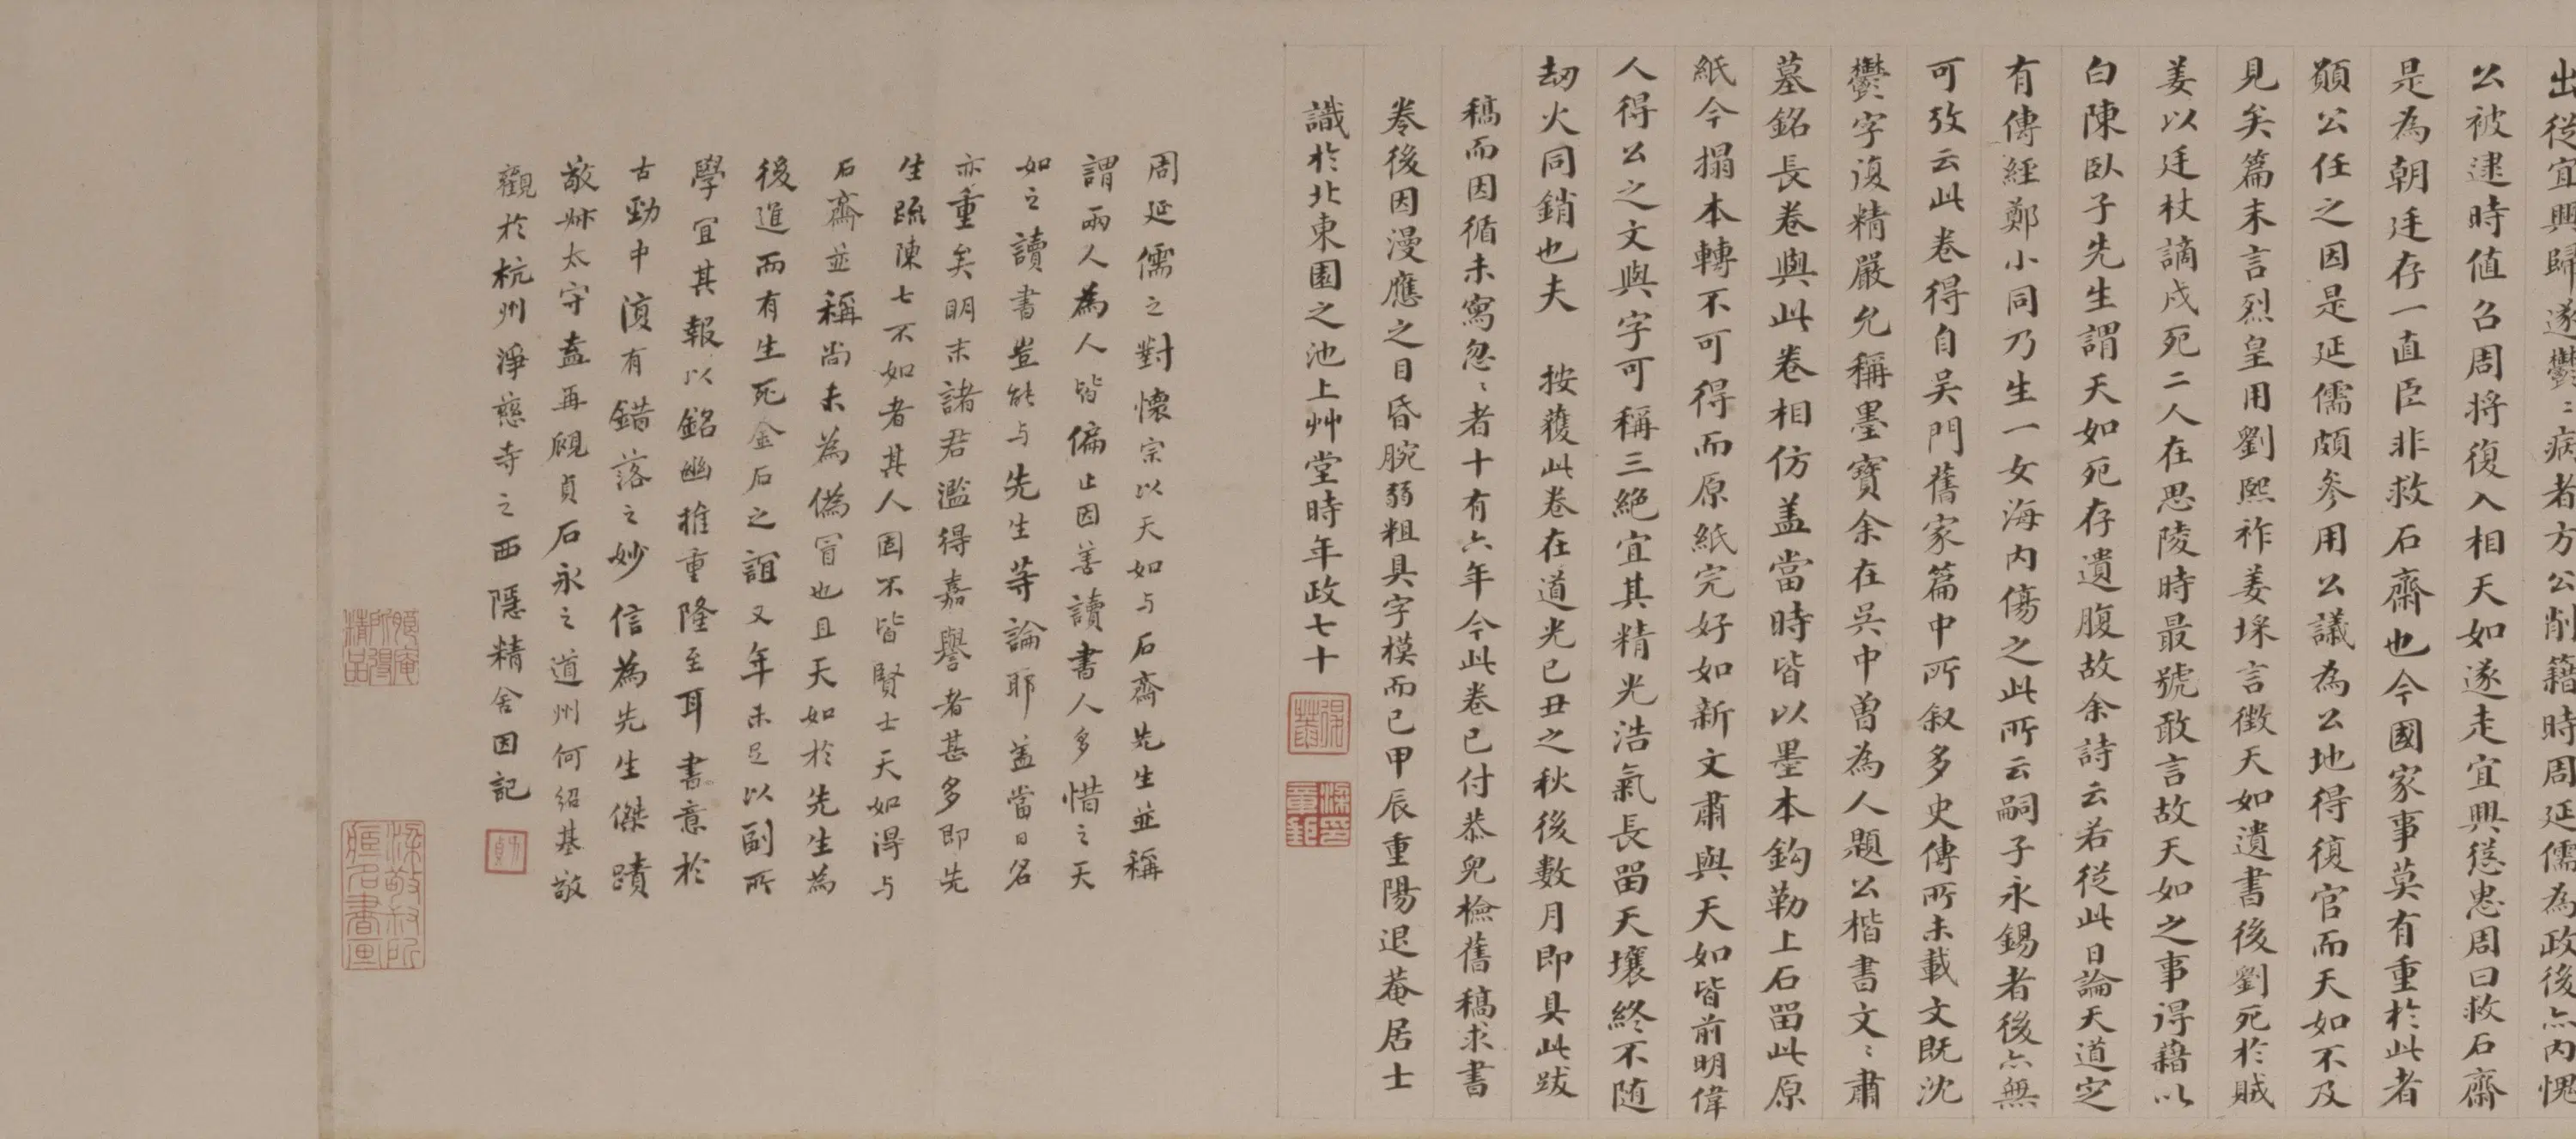 出從宜興歸遂鬱〻病者方公削籍時周延儒為政後亦內愧
公被逮時值召周將復入相天如遂走宜興慫恿周曰救石齋
是為朝廷存一直臣非救石齋也今國家事莫有重於此者
願公任之因是延儒頗參用公議為公地得復官而天如不及
見矣篇末言烈皇用劉熙祚姜埰言徵天如遺書後劉死於賊
姜以廷杖謫戍死二人在思陵時最號敢言故天如之事得藉以
白陳臥子先生謂天如死存遺腹故余詩云若從此日論天道定
有傳經鄭小同乃生一女海內傷之此所云嗣子永錫者後亦無
可攷云此卷得自吳門舊家篇中所叙多史傳所未載文既沈
鬱字復精嚴允稱墨寶余在吳中曾為人題公楷書文〻肅
墓銘長卷與此卷相仿盖當時皆以墨本鈎勒上石畱此原
紙今搨本轉不可得而原紙完好如新文肅與天如皆前明偉
人得公之文與字可稱三絕宜其精光浩氣長畱天壤終不随
劫火同銷也夫 按獲此卷在道光己丑之秋後數月即具此跋
稿而因循未寫忽〻者十有六年今此卷已付恭兒檢舊稿求書
卷後因漫應之目昏腕弱粗具字模而已甲辰重陽退菴居士
識於北東園之池上艸堂時年政七十
周延儒之對懷宗以天如与石齋先生並稱
謂兩人為人皆偏止因善讀書人多惜之天
如之讀書豈能与先生等論耶盖當日名
亦重矣明末諸君濫得嘉譽者甚多即先
生疏陳七不如者其人固不皆賢士天如得与
石齋並稱尚未為僞冒也且天如於先生為
後進而有生死金石之誼又年未足以副所
學宜其報以銘幽推重隆至耳書意於
古勁中復有錯落之妙信為先生傑蹟
敬叔太守盍再覷貞石永之道州何紹基敬
觀於杭州淨慈寺之西隱精舍因記
梁敬叔所
藏名書画